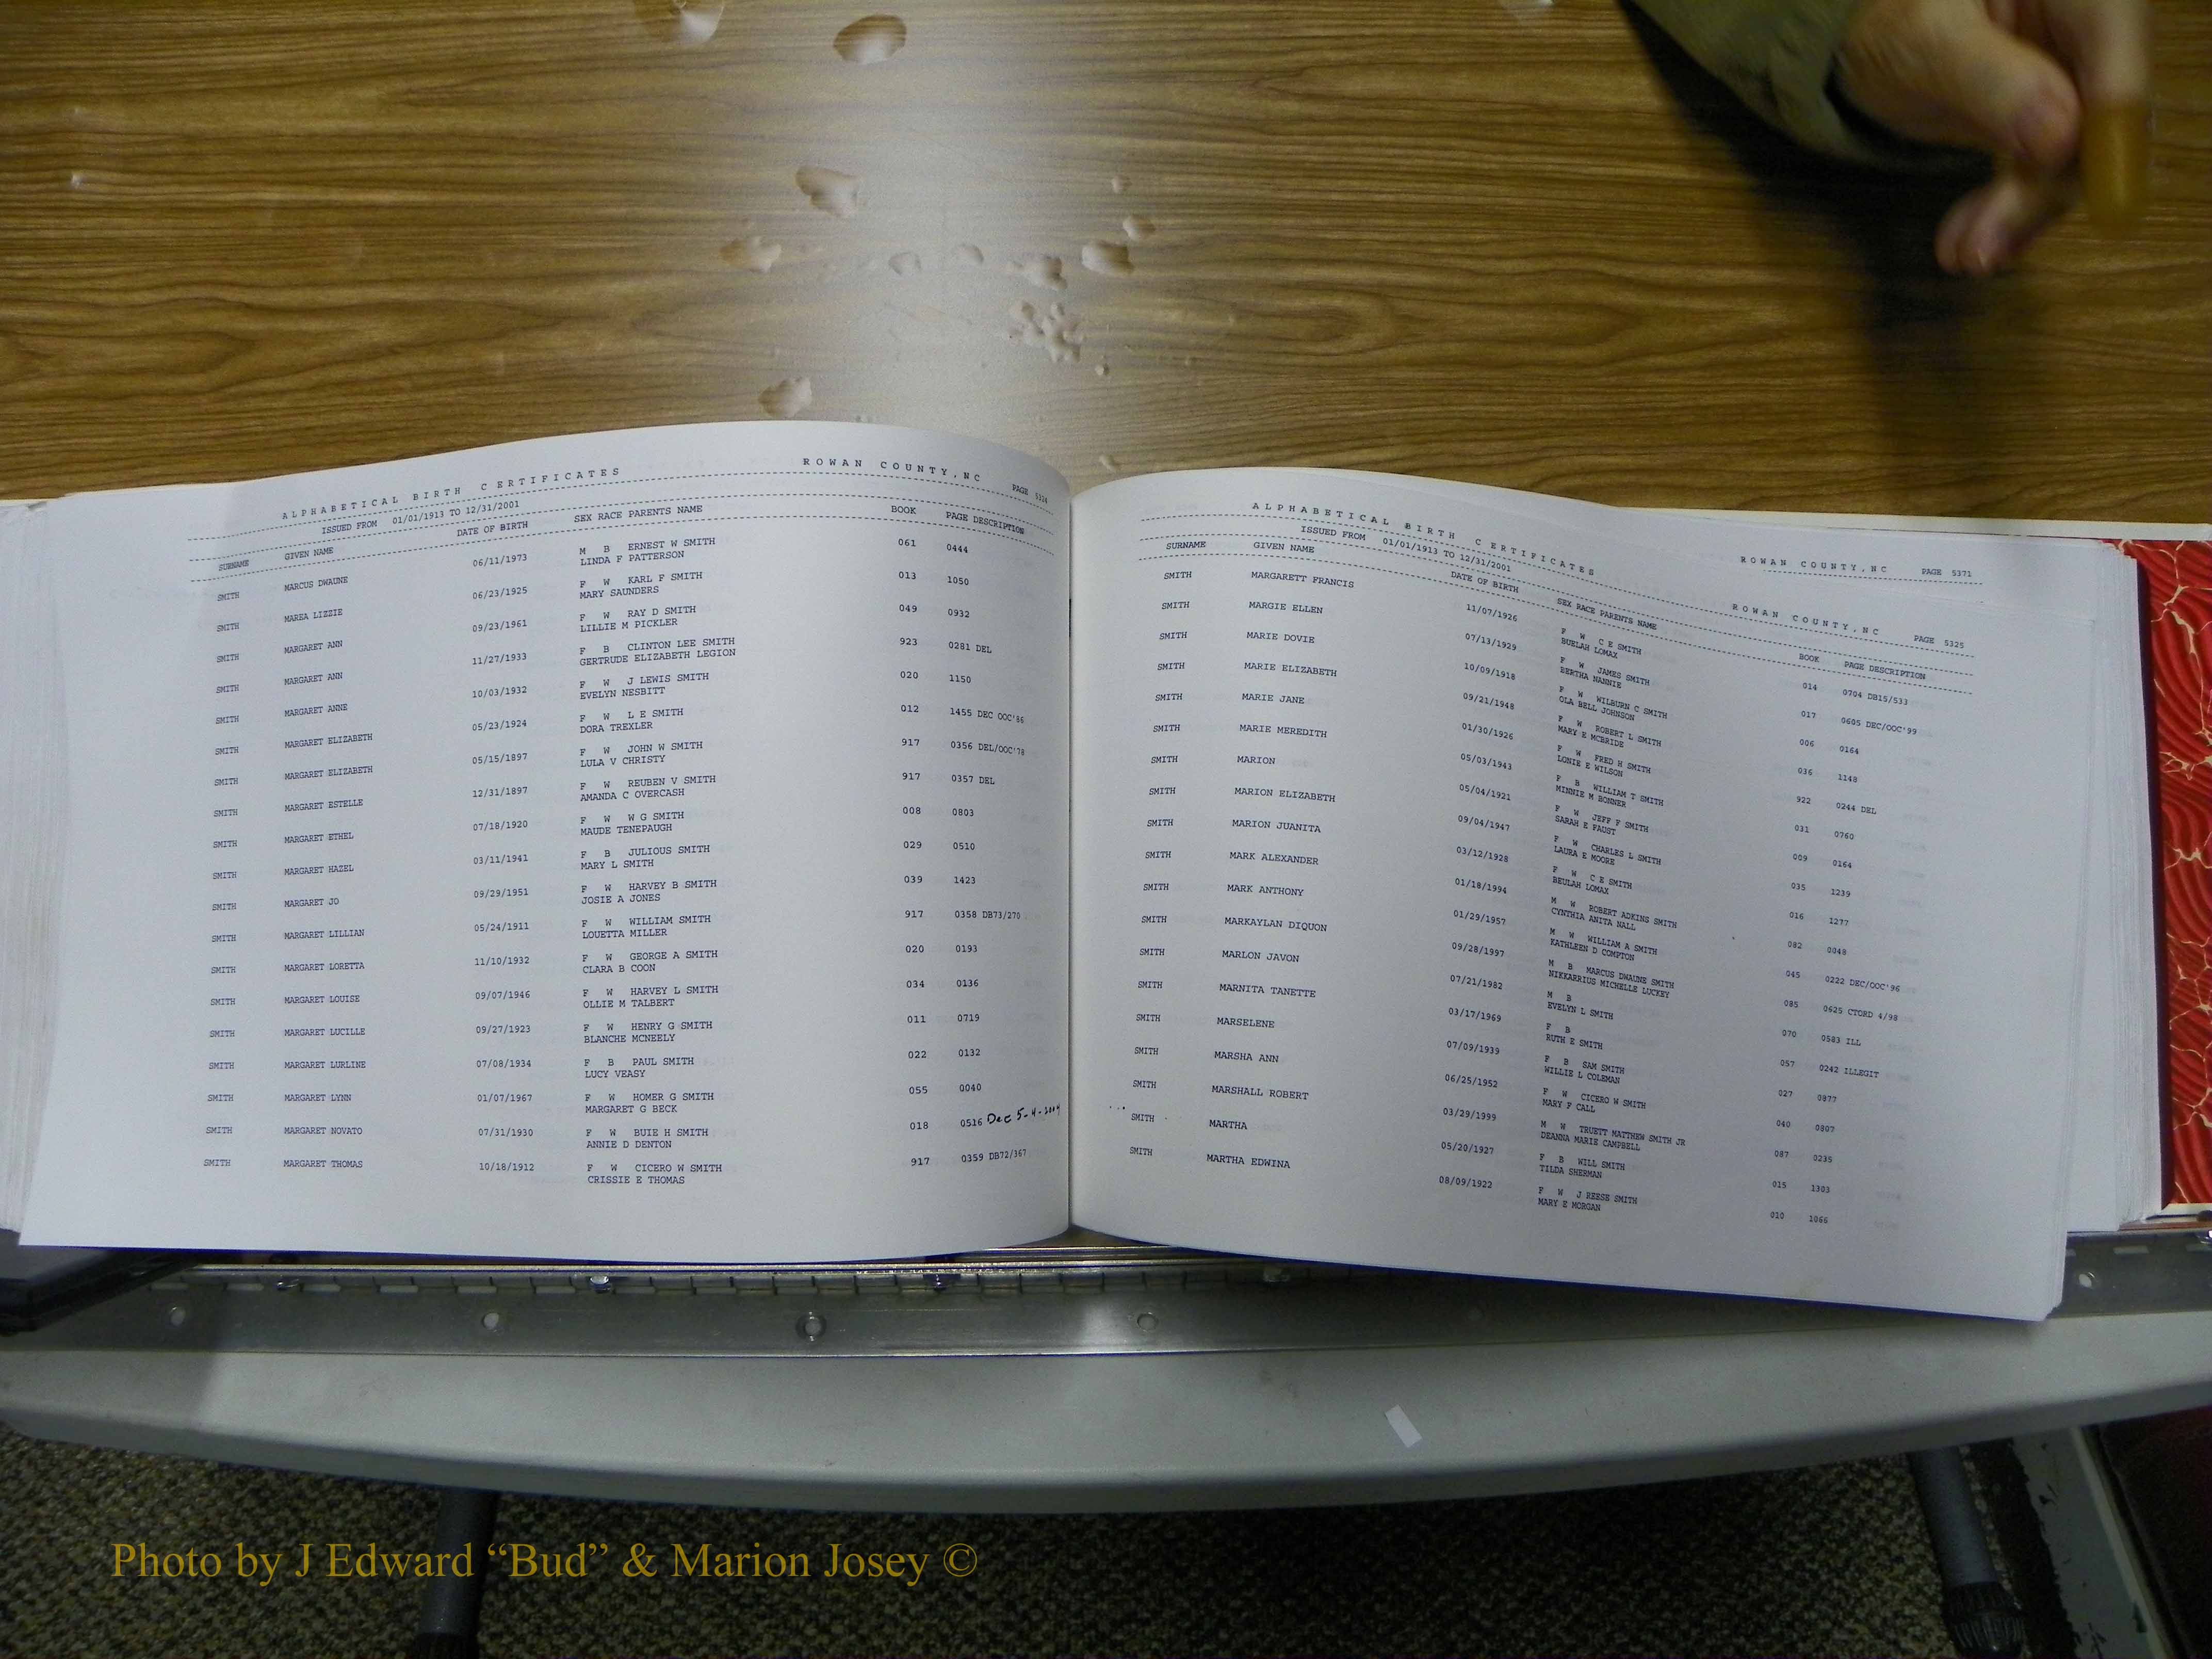 ALPHABETICAL BIRTH CERTIFICATES ROWAN COUNTY,NC PAGE 5324
ISSUED FROM 01/01/1913 TO 12/31/2001
SURNAME GIVEN NAME DATE OF BIRTH SEX RACE PARENTS NAME BOOK PAGE DESCRIPTION
SMITH MARCUS DWAUNE 06/11/1973 M B ERNEST W SMITH 061 0444
LINDA F PATTERSON
SMITH MAREA LIZZIE 06/23/1925 F W KARL F SMITH 013 1050
MARY SAUNDERS
SMITH MARGARET ANN 09/23/1961 F W RAY D SMITH 049 0932
LILLIE M PICKLER
SMITH MARGARET ANN 11/27/1933 F B CLINTON LEE SMITH 923 0281 DEL
GERTRUDE ELIZABETH LEGION
SMITH MARGARET ANNE 10/03/1932 F W J LEWIS SMITH 020 1150
EVELYN NESBITT
SMITH MARGARET ELIZABETH 05/23/1924 F W L E SMITH 012 1455 DEC OOC'86
DORA TREXLER
SMITH MARGARET ELIZABETH 05/15/1897 F W JOHN W SMITH 917 0356 DEL/OOC'78
LULA V CHRISTY
SMITH MARGARET ESTELLE 12/31/1897 F W REUBEN V SMITH 917 0357 DEL
AMANDA C OVERCASH
SMITH MARGARET ETHEL 07/18/1920 F W W G SMITH 008 0803
MAUDE TENEPAUGH
SMITH MARGARET HAZEL 03/11/1941 F B JULIOUS SMITH 029 0510
MARY L SMITH
SMITH MARGARET JO 09/29/1951 F W HARVEY B SMITH 039 1423
JOSIE A JONES
SMITH MARGARET LILLIAN 05/24/1911 F W WILLIAM SMITH 917 0358 DB73/270
LOUETTA MILLER
SMITH MARGARET LORETTA 11/10/1932 F W GEORGE A SMITH 020 0193
CLARA B COON
SMITH MARGARET LOUISE 09/07/1946 F W HARVEY L SMITH 034 0136
OLLIE M TALBERT
SMITH MARGARET LUCILLE 09/27/1923 F W HENRY G SMITH 011 0719
BLANCHE MCNEELY
SMITH MARGARET LURLINE 07/08/1934 F B PAUL SMITH 022 0132
LUCY VEASY
SMITH MARGARET LYNN 01/07/1967 F W HOMER G SMITH 055 0040
MARGARET G BECK
SMITH MARGARET NOVATO 07/31/1930 F W BUIE H SMITH 018 0516 Dec 5-4-2004
ANNIE D DENTON
SMITH MARGARET THOMAS 10/18/1912 F W CICERO W SMITH 917 0359 DB72/367
CRISSIE E THOMAS
ROWAN COUNTY,NC PAGE 5371
ALPHABETICAL BIRTH CERTIFICATES ROWAN COUNTY,NC PAGE 5325
ISSUED FROM 01/01/1913 TO 12/31/2001
SURNAME GIVEN NAME DATE OF BIRTH SEX RACE PARENTS NAME BOOK PAGE DESCRIPTION
SMITH MARGARETT FRANCIS 11/07/1926 F W C E SMITH 014 0704 DB15/533
BUELAH LOMAX
SMITH MARGIE ELLEN 07/13/1929 F W JAMES SMITH 017 0605 DEC/OOC'99
BERTHA NANNIE
SMITH MARIE DOVIE 10/09/1918 F W WILBURN C SMITH 006 0164
OLA BELL JOHNSON
SMITH MARIE ELIZABETH 09/21/1948 F W ROBERT L SMITH 036 1148
MARY E MCBRIDE
SMITH MARIE JANE 01/30/1926 F W FRED H SMITH 922 0244 DEL
LONIE E WILSON
SMITH MARIE MEREDITH 05/03/1943 F B WILLIAM T SMITH 031 0760
MINNIE M BONNER
SMITH MARION 05/04/1921 F W JEFF F SMITH 009 0164
SARAH E FAUST
SMITH MARION ELIZABETH 09/04/1947 F W CHARLES L SMITH 035 1239
LAURA E MOORE
SMITH MARION JUANITA 03/12/1928 F W C E SMITH 016 1277
BEULAH LOMAX
SMITH MARK ALEXANDER 01/18/1994 M W ROBERT ADKINS SMITH 082 0048
CYNTHIA ANITA NALL
SMITH MARK ANTHONY 01/29/1957 M W WILLIAM A SMITH 045 0222 DEC/OOC'96
KATHLEEN D COMPTON
SMITH MARKAYLAN DIQUON 09/28/1997 M B MARCUS DWAUNE SMITH 085 0625 CTORD 4/98
NIKKARRIUS MICHELLE LUCKEY
SMITH MARLON JAVON 07/21/1982 M B 070 0583 ILL
EVELYN L SMITH
SMITH MARNITA TANETTE 03/17/1969 F B 057 0242 ILLEGIT
RUTH E SMITH
SMITH MARSELENE 07/09/1939 F B SAM SMITH 027 0877
WILLIE L COLEMAN
SMITH MARSHA ANN 06/25/1952 F W CICERO W SMITH 040 0807
MARY F CALL
SMITH MARSHALL ROBERT 03/29/1999 M W TRUETT MATTHEW SMITH JR 087 0235
DEANNA MARIE CAMPBELL
SMITH MARTHA 05/20/1927 F B WILL SMITH 015 1303
TILDA SHERMAN
SMITH MARTHA EDWINA 08/09/1922 F W J REESE SMITH 010 1066
MARY E MORGAN
Photo by J Edward “Bud” & Marion Josey ©